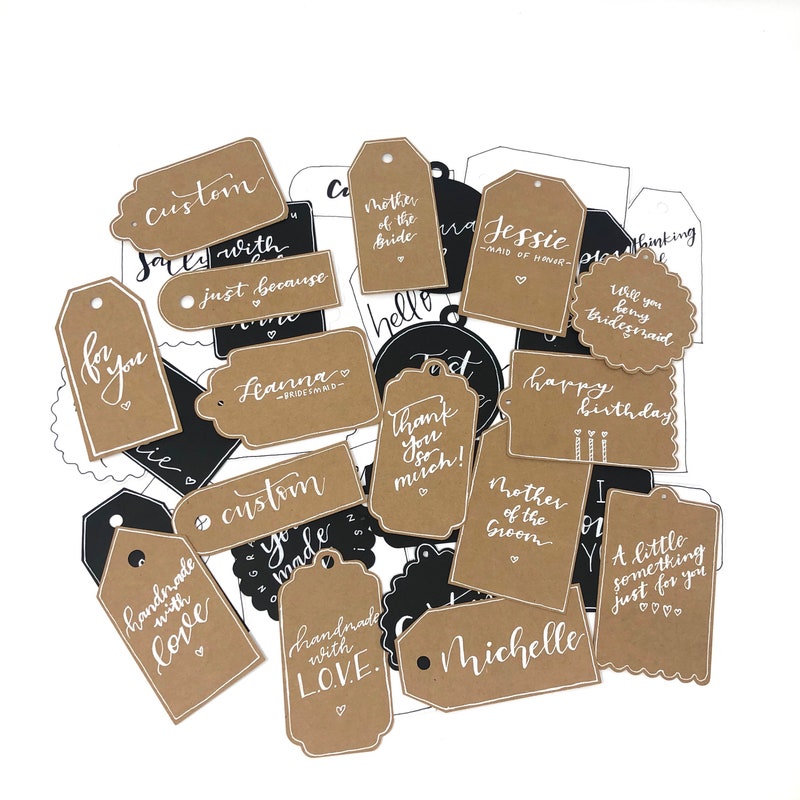 custom
Mother
of the
Bride
Jessie
MAID OF HONOR
thinking
Sally
with
just because
hello
Will you
be my
Bridesmaid
for
you
Leanna
BRIDESMAID
Just
thank
you
so
much!
happy
birthday
custom
Mother
of the
Groom
I
you
made
A little
something
just for you
handmade
with
love
handmade
with
L.O.V.E.
Michelle